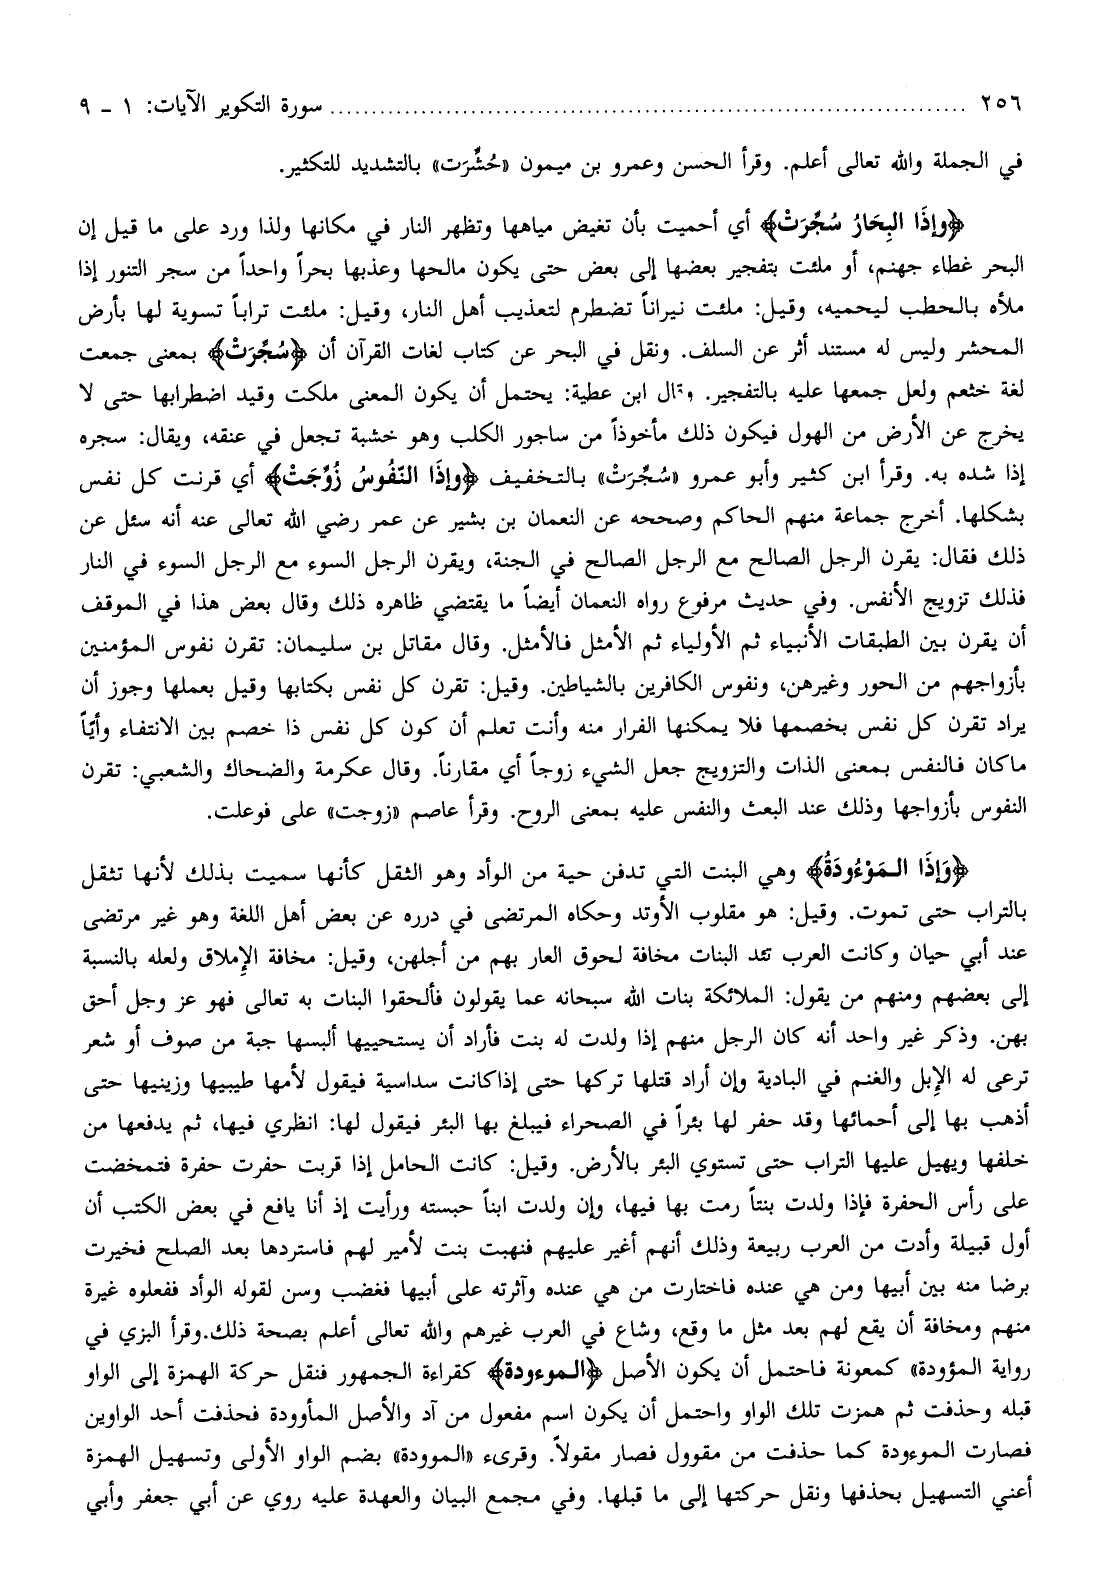 ٢٥٦ ........................................ سورة التكوير الآيات: ١ - ٩
في الجملة والله تعالى أعلم. وقرأ الحسن وعمرو بن ميمون «حُشِّرَت» بالتشديد للتكثير.
﴿وإذَا البِحَارُ سُجِّرَتْ﴾ أي أحميت بأن تغيض مياهها وتظهر النار في مكانها ولذا ورد على ما قيل إن
البحر غطاء جهنم، أو ملئت بتفجير بعضها إلى بعض حتى يكون مالحها وعذبها بحراً واحداً من سجر التنور إذا
ملأه بالحطب ليحميه، وقيل: ملئت نيراناً تضطرم لتعذيب أهل النار، وقيل: ملئت تراباً تسوية لها بأرض
المحشر وليس له مستند أثر عن السلف. ونقل في البحر عن كتاب لغات القرآن أن ﴿سُجِّرَتْ﴾ بمعنى جمعت
لغة خثعم ولعل جمعها عليه بالتفجير. وقال ابن عطية: يحتمل أن يكون المعنى ملكت وقيد اضطرابها حتى لا
يخرج عن الأرض من الهول فيكون ذلك مأخوذاً من ساجور الكلب وهو خشبة تجعل في عنقه، ويقال: سجره
إذا شده به. وقرأ ابن كثير وأبو عمرو «سُجِّرَتْ» بالتخفيف ﴿وإذَا النّفُوسُ زُوِّجَتْ﴾ أي قرنت كل نفس
بشكلها. أخرج جماعة منهم الحاكم وصححه عن النعمان بن بشير عن عمر رضي الله تعالى عنه أنه سئل عن
ذلك فقال: يقرن الرجل الصالح مع الرجل الصالح في الجنة، ويقرن الرجل السوء مع الرجل السوء في النار
فذلك تزويج الأنفس. وفي حديث مرفوع رواه النعمان أيضاً ما يقتضي ظاهره ذلك وقال بعض هذا في الموقف
أن يقرن بين الطبقات الأنبياء ثم الأولياء ثم الأمثل فالأمثل. وقال مقاتل بن سليمان: تقرن نفوس المؤمنين
بأزواجهم من الحور وغيرهن، ونفوس الكافرين بالشياطين. وقيل: تقرن كل نفس بكتابها وقيل بعملها وجوز أن
يراد تقرن كل نفس بخصمها فلا يمكنها الفرار منه وأنت تعلم أن كون كل نفس ذا خصم بين الانتفاء وأيّاً
ماكان فالنفس بمعنى الذات والتزويج جعل الشيء زوجاً أي مقارناً. وقال عكرمة والضحاك والشعبي: تقرن
النفوس بأزواجها وذلك عند البعث والنفس عليه بمعنى الروح. وقرأ عاصم «زوجت» على فوعلت.
﴿وَإذَا المَوْءُودَةُ﴾ وهي البنت التي تدفن حية من الوأد وهو الثقل كأنها سميت بذلك لأنها تثقل
بالتراب حتى تموت. وقيل: هو مقلوب الأوتد وحكاه المرتضى في درره عن بعض أهل اللغة وهو غير مرتضى
عند أبي حيان وكانت العرب تئد البنات مخافة لحوق العار بهم من أجلهن، وقيل: مخافة الإملاق ولعله بالنسبة
إلى بعضهم ومنهم من يقول: الملائكة بنات الله سبحانه عما يقولون فألحقوا البنات به تعالى فهو عز وجل أحق
بهن. وذكر غير واحد أنه كان الرجل منهم إذا ولدت له بنت فأراد أن يستحييها ألبسها جبة من صوف أو شعر
ترعى له الإبل والغنم في البادية وإن أراد قتلها تركها حتى إذاكانت سداسية فيقول لأمها طيبيها وزينيها حتى
أذهب بها إلى أحمائها وقد حفر لها بئراً في الصحراء فيبلغ بها البئر فيقول لها: انظري فيها، ثم يدفعها من
خلفها ويهيل عليها التراب حتى تستوي البئر بالأرض. وقيل: كانت الحامل إذا قربت حفرت حفرة فتمخضت
على رأس الحفرة فإذا ولدت بنتاً رمت بها فيها، وإن ولدت ابناً حبسته ورأيت إذ أنا يافع في بعض الكتب أن
أول قبيلة وأدت من العرب ربيعة وذلك أنهم أغير عليهم فنهبت بنت لأمير لهم فاستردها بعد الصلح فخيرت
برضا منه بين أبيها ومن هي عنده فاختارت من هي عنده وآثرته على أبيها فغضب وسن لقوله الوأد ففعلوه غيرة
منهم ومخافة أن يقع لهم بعد مثل ما وقع، وشاع في العرب غيرهم والله تعالى أعلم بصحة ذلك.وقرأ البزي في
رواية المؤودة» كمعونة فاحتمل أن يكون الأصل ﴿الموءودة﴾ كقراءة الجمهور فنقل حركة الهمزة إلى الواو
قبله وحذفت ثم همزت تلك الواو واحتمل أن يكون اسم مفعول من آد والأصل المأوودة فحذفت أحد الواوين
فصارت الموءودة كما حذفت من مقوول فصار مقولاً. وقرىء «الموودة» بضم الواو الأولى وتسهيل الهمزة
أعني التسهيل بحذفها ونقل حركتها إلى ما قبلها. وفي مجمع البيان والعهدة عليه روي عن أبي جعفر وأبي